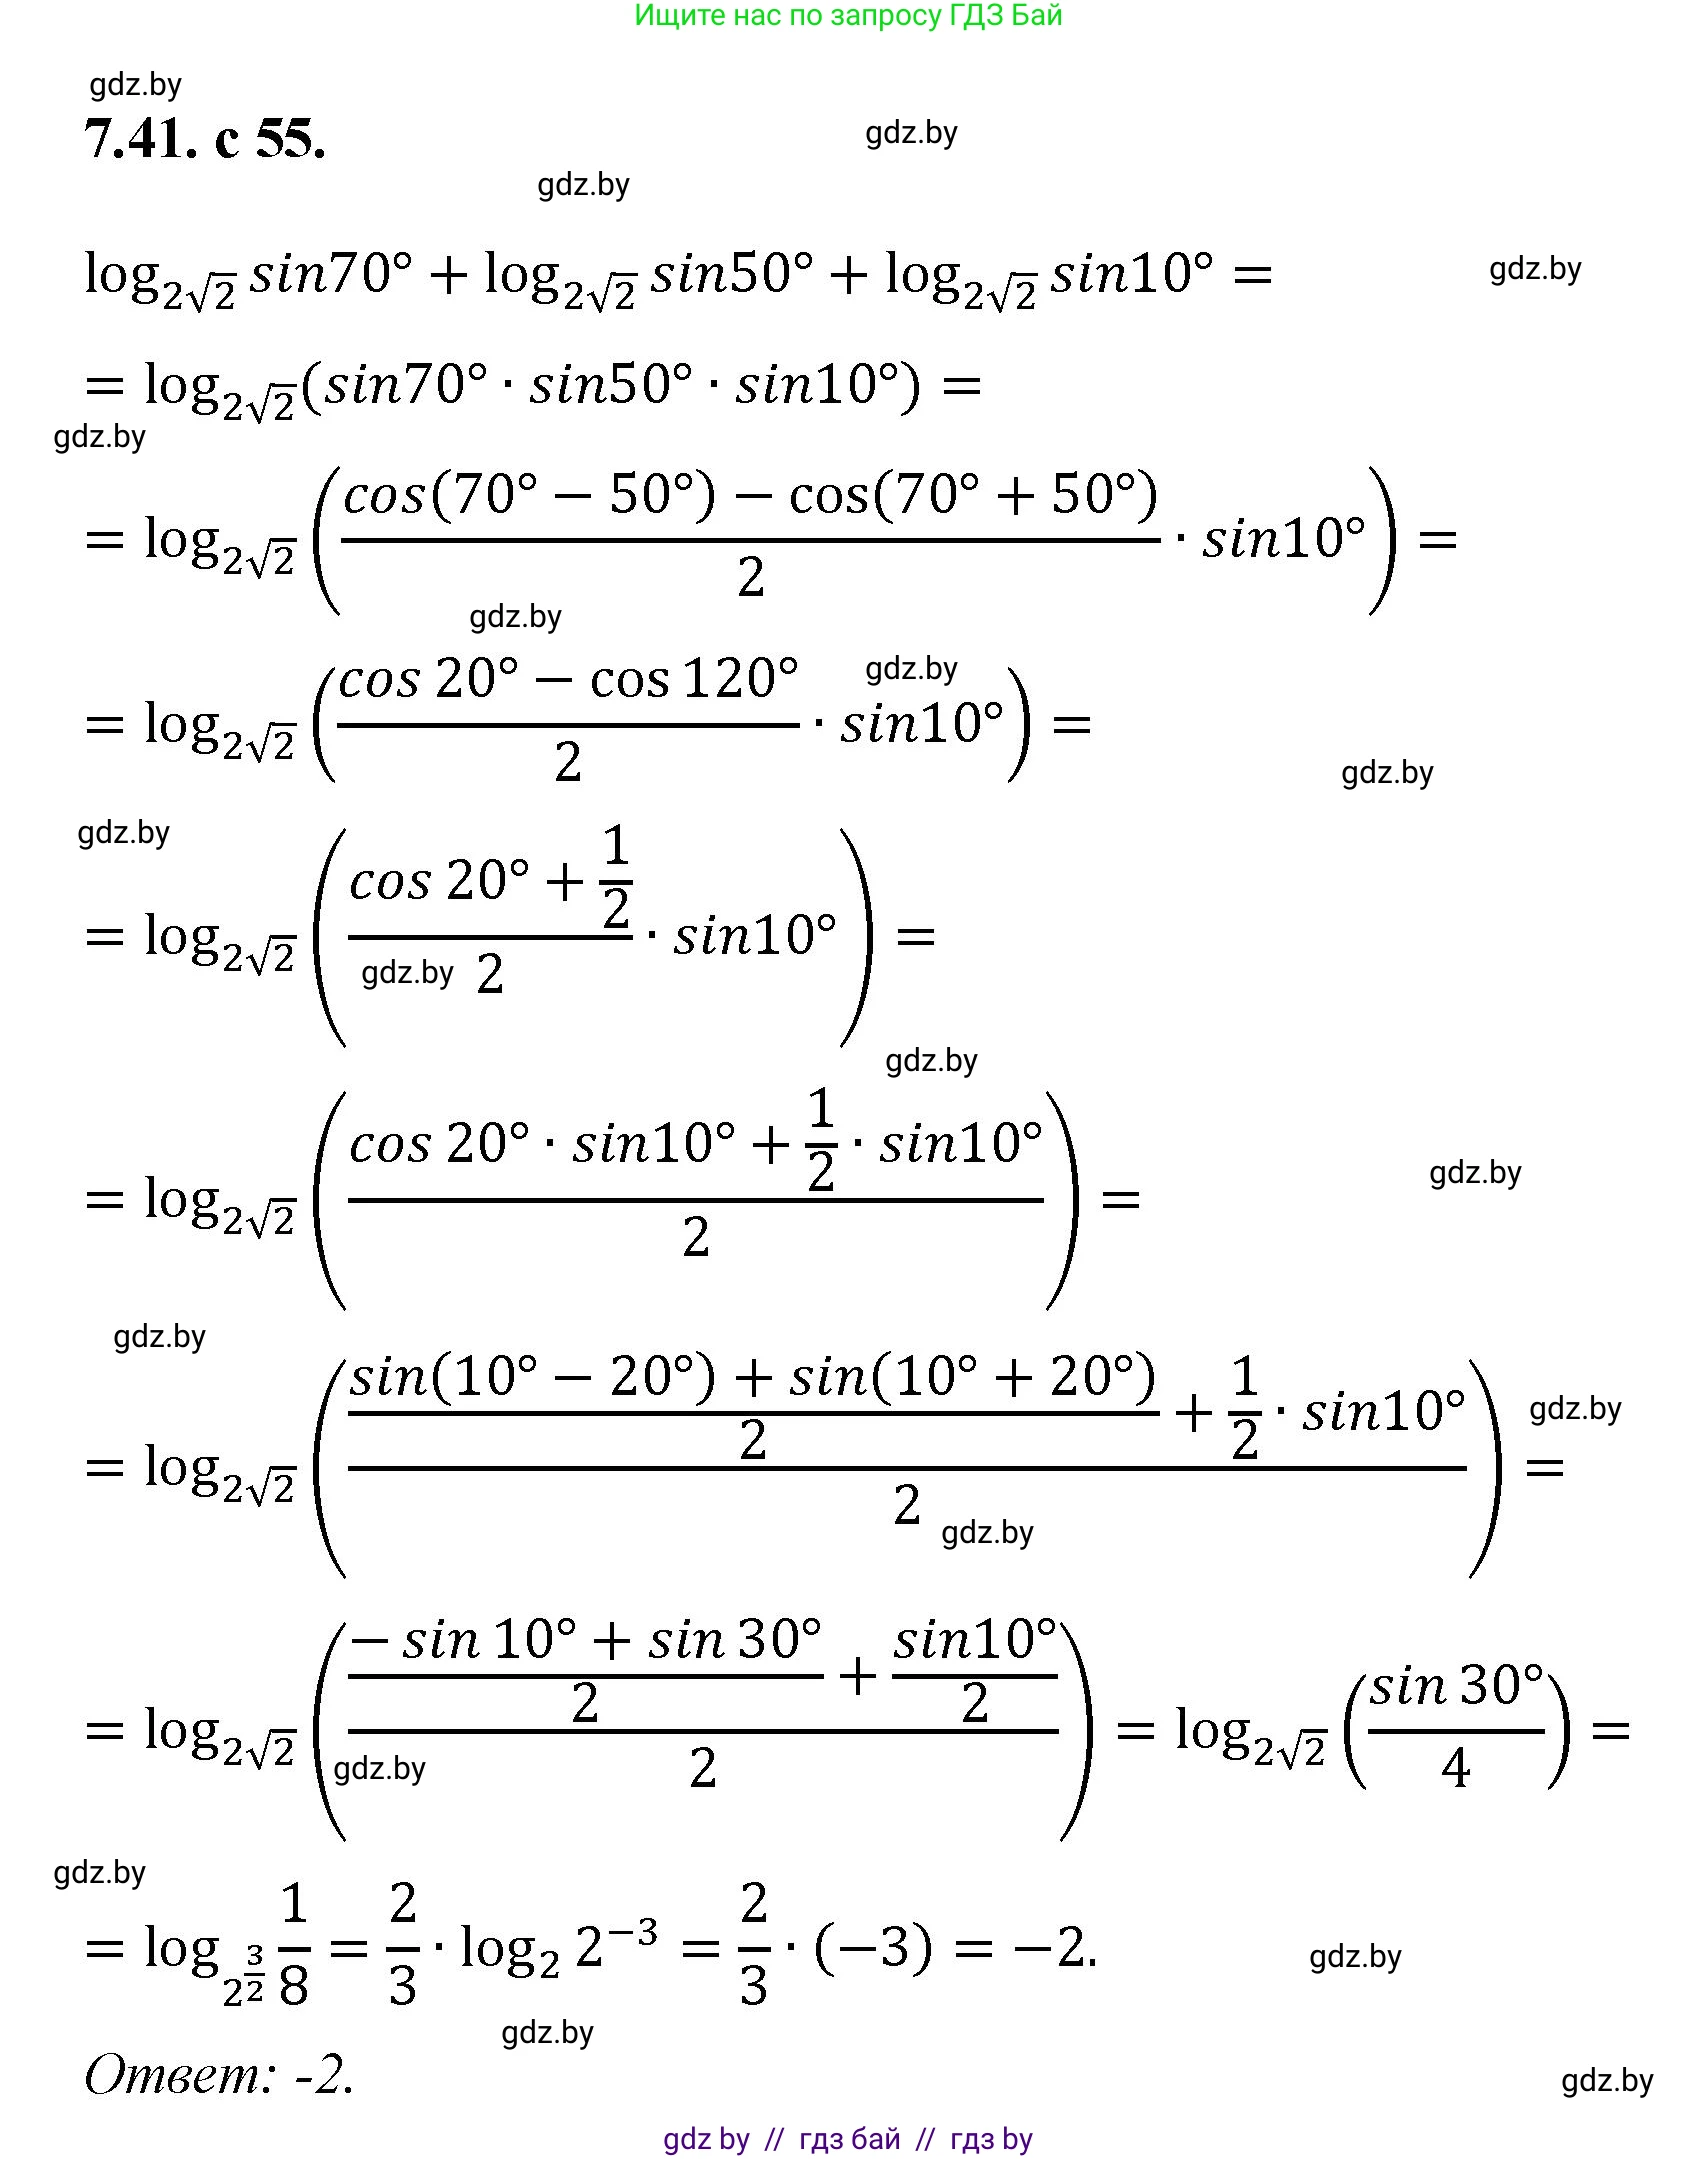 Ищите нас по запросу ГДЗ Бай
gdz.by
7.41. с 55.
gdz.by
gdz.by
log_{2√2} sin70° + log_{2√2} sin50° + log_{2√2} sin10° =
gdz.by
= log_{2√2}(sin70° · sin50° · sin10°) =
gdz.by
= log_{2√2} ((cos(70° − 50°) − cos(70° + 50°))/2 · sin10°) =
gdz.by
gdz.by
= log_{2√2} ((cos 20° − cos 120°)/2 · sin10°) =
gdz.by
gdz.by
= log_{2√2} ((cos 20° + 1/2)/2 · sin10°) =
gdz.by
gdz.by
= log_{2√2} ((cos 20° · sin10° + 1/2 · sin10°)/2) =
gdz.by
gdz.by
= log_{2√2} (((sin(10° − 20°) + sin(10° + 20°))/2 + 1/2 · sin10°)/2) =
gdz.by
gdz.by
= log_{2√2} (((− sin 10° + sin 30°)/2 + sin10°/2)/2) = log_{2√2} (sin 30°/4) =
gdz.by
gdz.by
= log_{2^{3/2}} 1/8 = 2/3 · log_2 2^{−3} = 2/3 · (−3) = −2.
gdz.by
gdz.by
Ответ: -2.
gdz.by
gdz by // гдз бай // гдз by